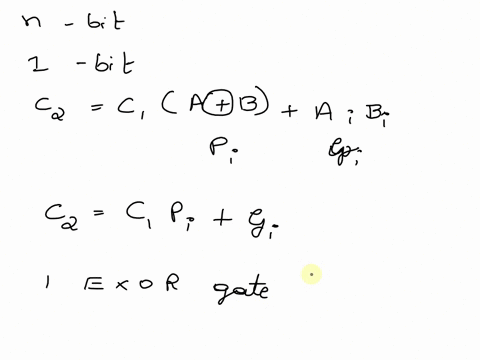 n - bit
1 - bit
C₂ = C₁ (A ⊕ B) + Aᵢ Bᵢ
Pᵢ Gᵢ
C₂ = C₁ Pᵢ + Gᵢ
1 EXOR gate